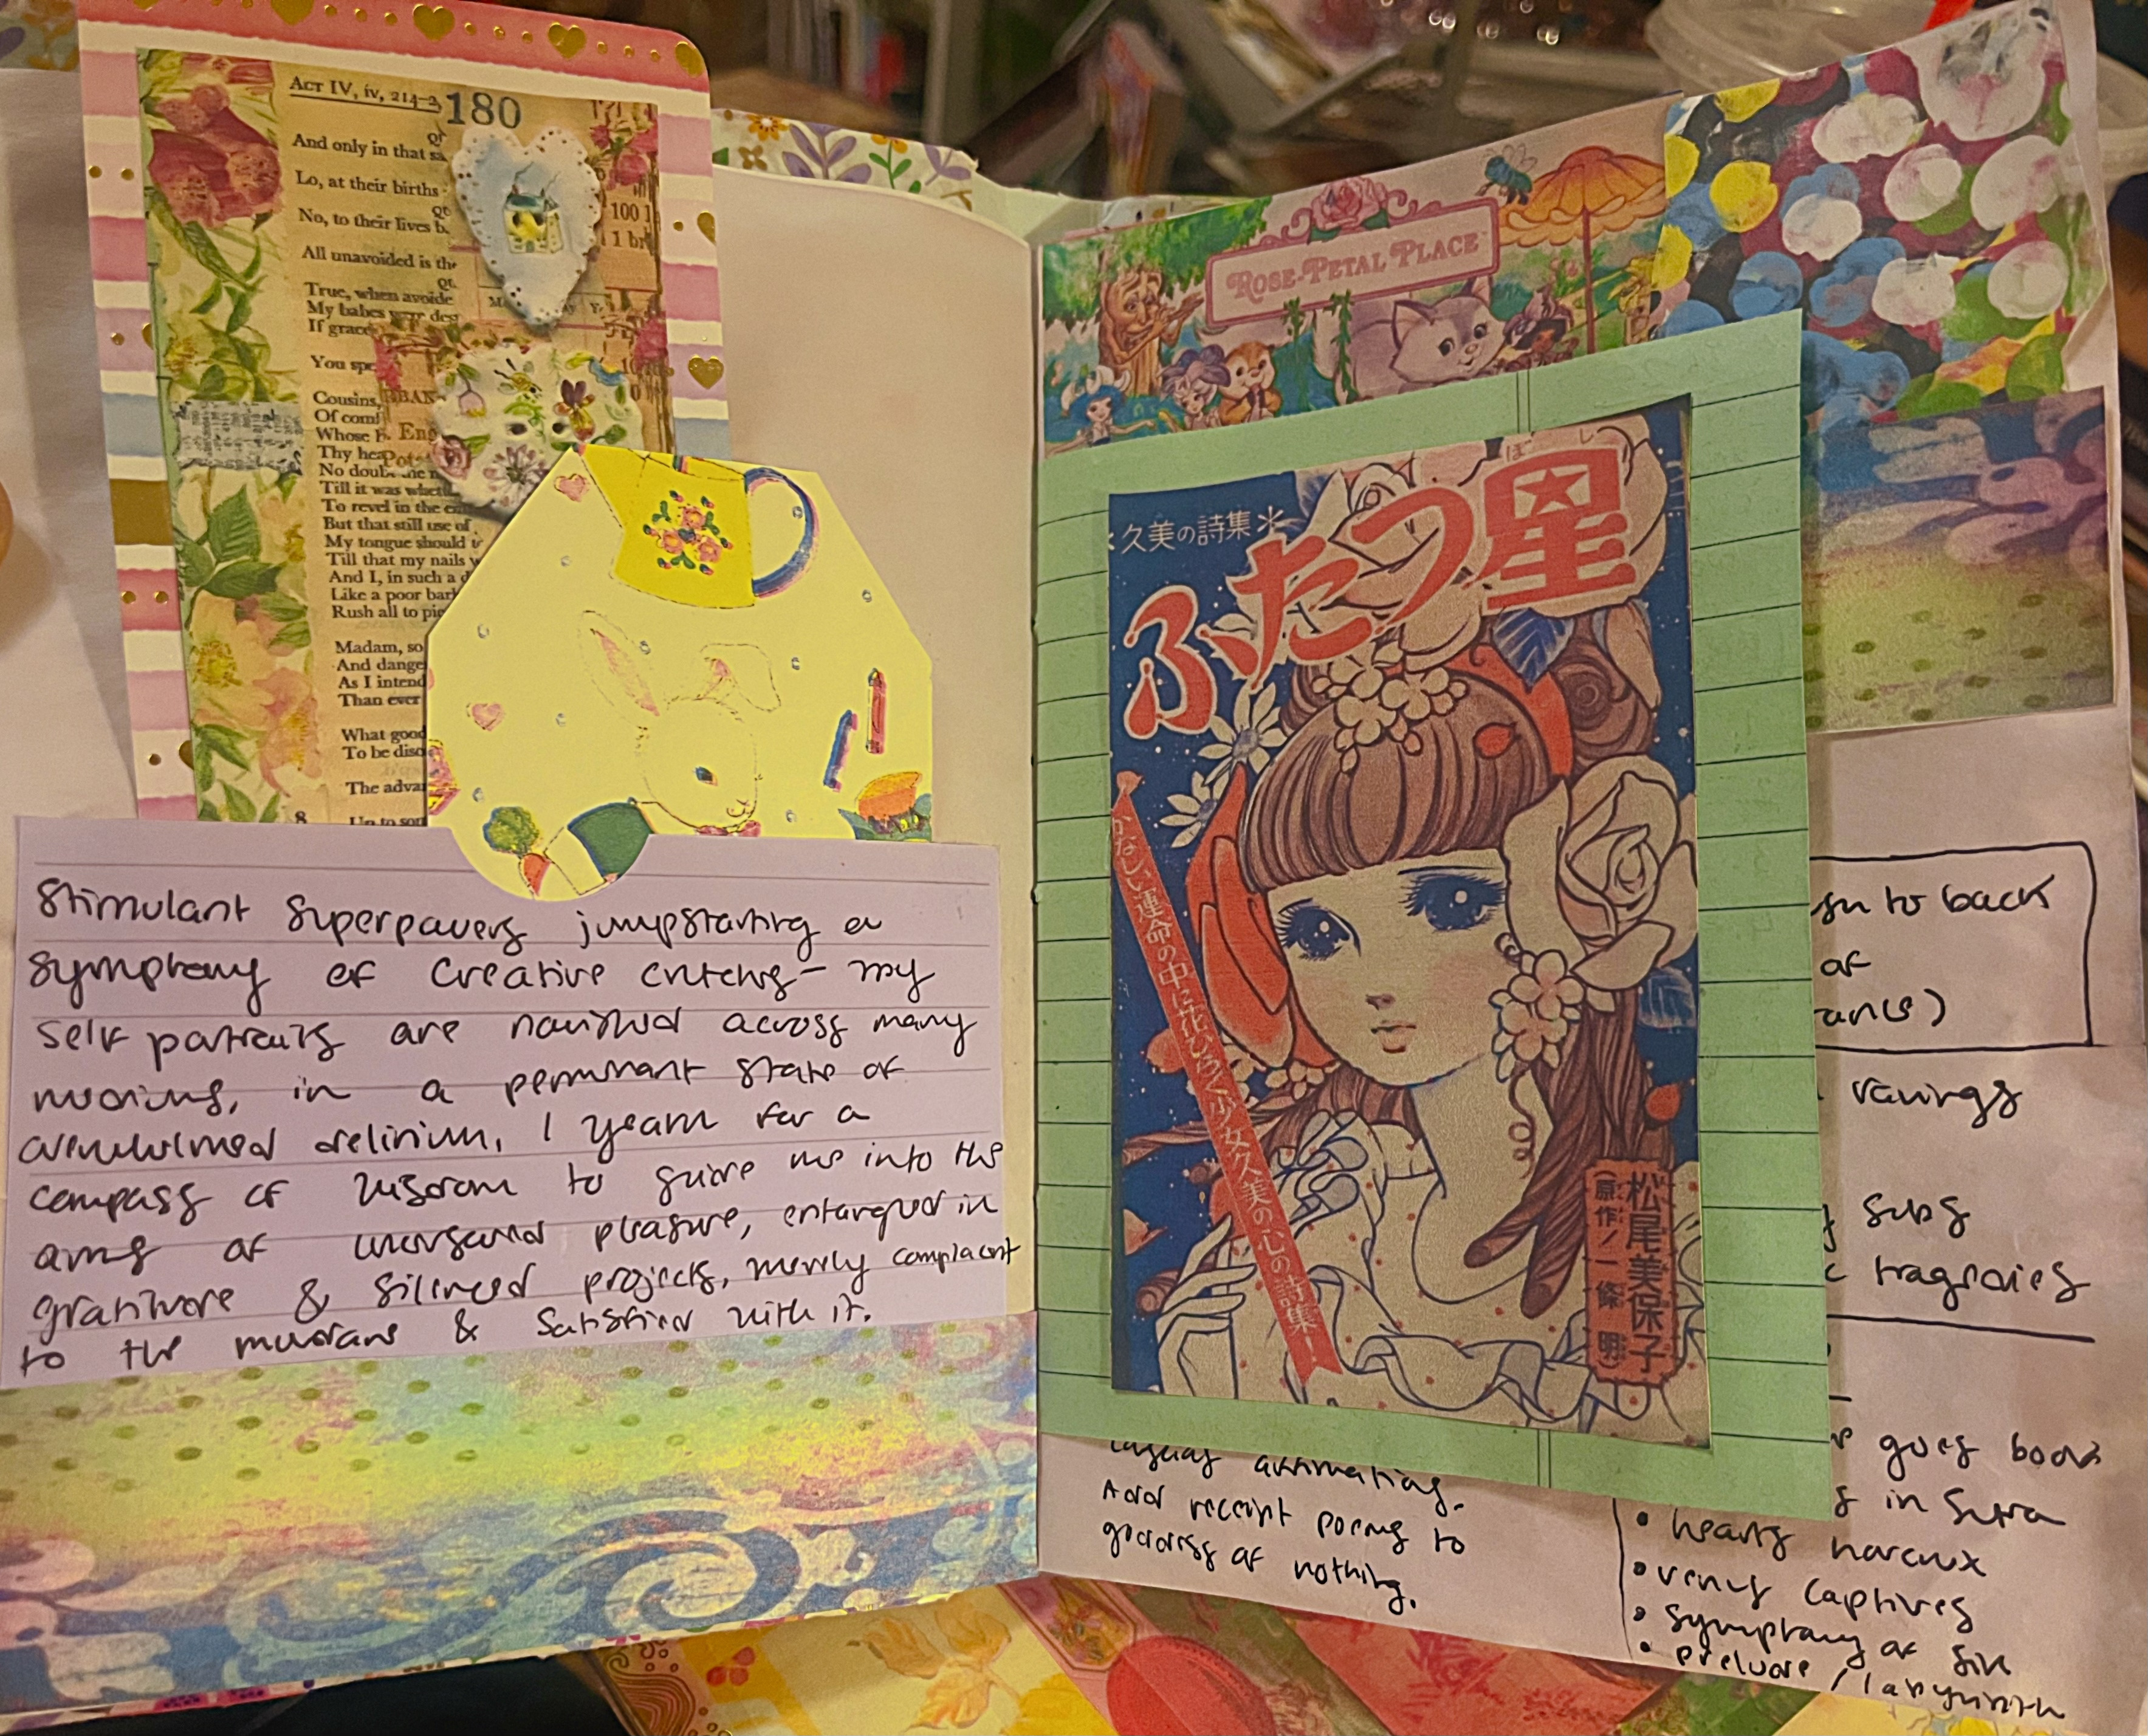 ACT IV, iv, 214-
180
And only in that
Lo, at their births
No, to their lives b
All unavoided is the
True, when avoide
My babes were des
If grace
You spe
Cousins,
Of com
Whose h
Thy hea
No doubt the
Till it was whet
To revel in the
But that still use of
My tongue should
Till that my nails
And I, in such a d
Like a poor bark
Rush all to pie
Madam, so
And dange
As I intend
Than ever
What good
To be disc
The advan
Up to som
100 1
1 br
Stimulant superpowers jumpstarting a
symphony of creative crutches - my
self portraits are nourished across many
mediums, in a permanent state of
overwhelmed delirium, I yearn for a
compass of wisdom to guide me into the
arms of pleasure, entangled in
gratitude & silenced projects, merely complacent
to the mundane & satisfied with it.
ROSE-PETAL PLACE
久美の詩集
ふたつ星
ぼし
かなしい運命の中に花ひらく少女久美の心の詩集!
松尾美保子
(原作/一條 明)
to back
of
ravings
subs
tragedies
goes book
in Sutra
animating.
Add receipt poems to
goddess of nothing.
• hearts
• venus captives
• symphony of sin
• prelude / labyrinth